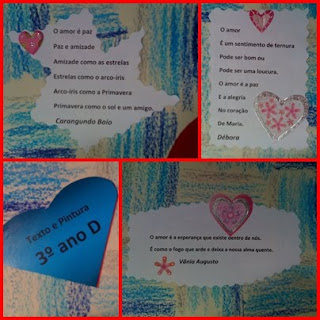 O amor é paz
Paz e amizade
Amizade como as estrelas
Estrelas como o arco-íris
Arco-íris como a Primavera
Primavera como o sol e um amigo.
Carangundo Baio
O amor
É um sentimento de ternura
Pode ser bom ou
Pode ser uma loucura.
O amor é a paz
E a alegria
No coração
De Maria.
Débora
Texto e Pintura
3º ano D
O amor é a esperança que existe dentro de nós.
É como o fogo que arde e deixa a nossa alma quente.
Vânia Augusto